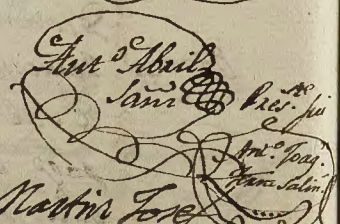 Ant.º Abril
Sanz
Pres.te fui
Ant.º Joaq.n
Martin Josef